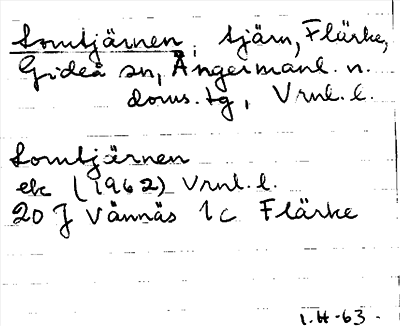 Lomtjärnen, tjärn, Flärke,
Gideå sn, Ångermanl. n.
doms.tg, Vrnl. l.
Lomtjärnen
ek (1962) Vrnl. l.
20 J Vännäs 1c Flärke
1.H-63